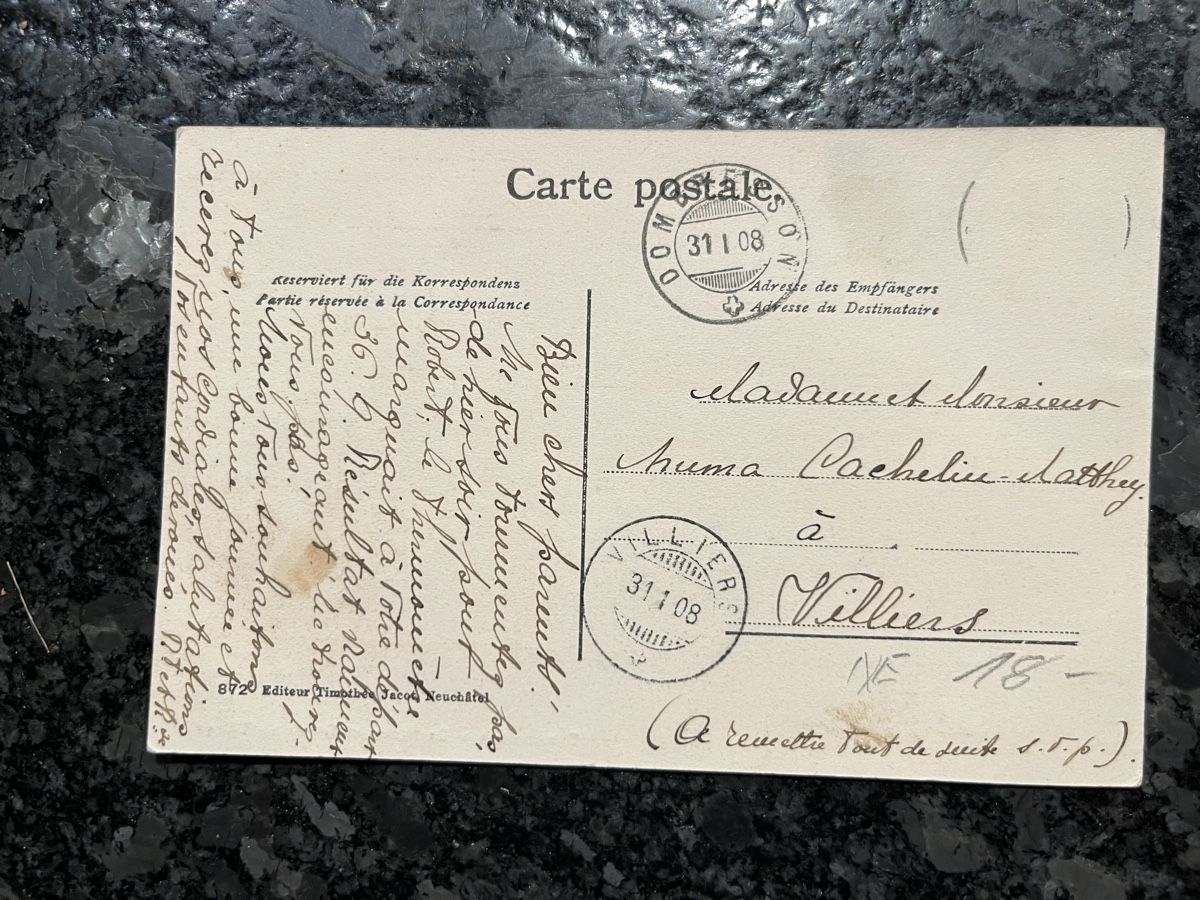 Carte postale.
DOMBRESSON
31 I 08
Reserviert für die Korrespondenz
Partie réservée à la Correspondance
Adresse des Empfängers
Adresse du Destinataire
Bien chers parents!
Ne vous tourmentez pas
de hier soir pour
Robert, le thermomètre
marquait à votre départ
36.6. Résultat vraiment
encourageant, le trouvez-
vous pas!
Nous vous souhaitons
à tous, une bonne journée et
recevez nos cordiales salutations
Vos enfants dévoués.
Madame et Monsieur
Numa Cachelin-Matthey.
à
Villiers
VILLIERS
31 I 08
18-
(A remettre tout de suite s.v.p.)
872 Editeur Timothée Jacot, Neuchâtel